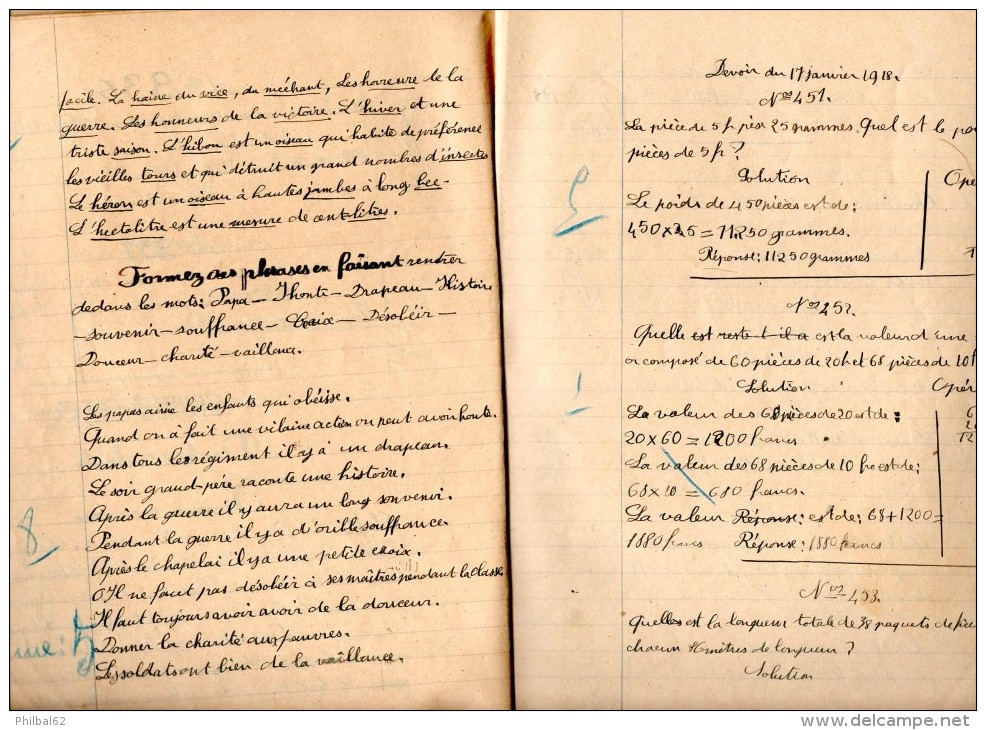 facile. La haine du vice, du méchant, Les horreure de la
guerre. Les honneurs de la victoire. L'hiver et une
triste saison. L'hibou est un oiseau qui habite de préférence
les vieilles tours et qui détruit un grand nombres d'insectes
Le héron est un oiseau à hautes jambes à long bec.
L'hectolitre est une mesure de cent litres.
Formez des phrases en faisant rentrer
dedans les mots: Papa — Honte — Drapeau — Histoire
— souvenir — souffrance — Croix — Désobéir —
Douceur — charité — vaillance.
Les papas aime les enfants qui obéisse.
Quand on à fait une vilaine action on peut avoir honte.
Dans tous les régiment il y à un drapeau.
Le soir grand-père raconte une histoire.
Après la guerre il y aura un long souvenir.
Pendant la guerre il y a d'orible souffrance.
8 Après le chapelai il y a une petite croix.
Il ne faut pas désobéir à ses maîtres pendant la classe
Il faut toujours avoir avoir de la douceur.
Donner la charité aux pauvres.
Les soldats ont bien de la vaillance.
Devoir du 17 janvier 1918.
Nos 451.
La pièce de 5f pèse 25 grammes. Quel est le po
pièces de 5f ?
Solution
Ope
Le poids de 450 pièces est de:
450 x 25 = 11250 grammes.
Réponse: 11250 grammes
Nos 452.
Quelle est reste t il a est la valeur d'une
or composé de 60 pièces de 20f et 68 pièces de 10f
Solution
Opér
La valeur des 60 pièces de 20 est de:
20 x 60 = 1200 francs
La valeur des 68 pièces de 10 fr est de:
68 x 10 = 680 francs.
La valeur Réponse: est de: 68 + 1200 =
1880 francs Réponse: 1880 francs
Nos 453.
Quelles est la longueur totale de 38 paquets de
chacun mètres de longueur ?
Solution
Philbal62
www.delcampe.net